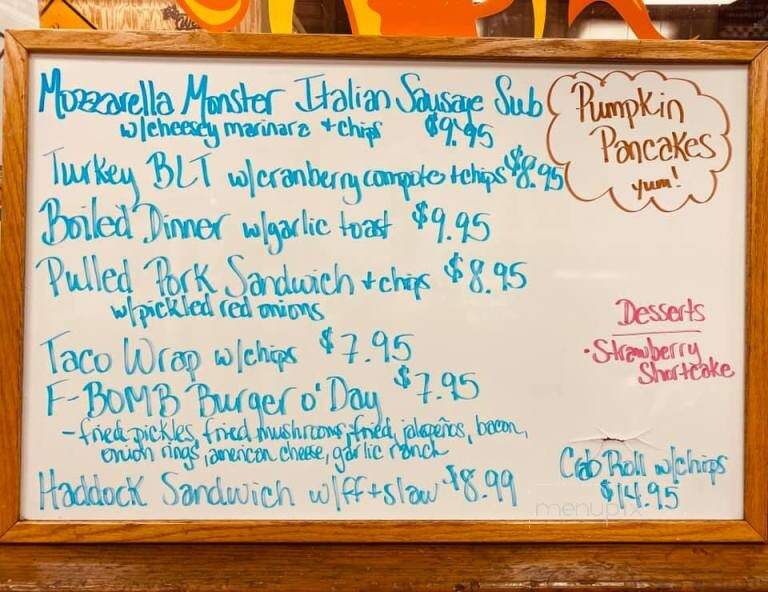 Mozzarella Monster Italian Sausage Sub
w/cheesey marinara + chips $9.95
Turkey BLT w/cranberry compote + chips $8.95
Boiled Dinner w/garlic toast $9.95
Pulled Pork Sandwich + chips $8.95
w/pickled red onions
Taco Wrap w/chips $7.95
F-BOMB Burger o' Day $7.95
- fried pickles, fried mushrooms, fried jalapeños, bacon,
onion rings, american cheese, garlic ranch
Haddock Sandwich w/ff + slaw $8.99
Pumpkin
Pancakes
yum!
Desserts
• Strawberry
Shortcake
Crab Roll w/chips
$14.95
menupix